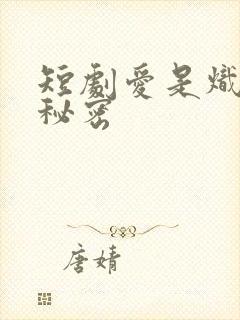 短劇愛是熾
秘密
唐婧